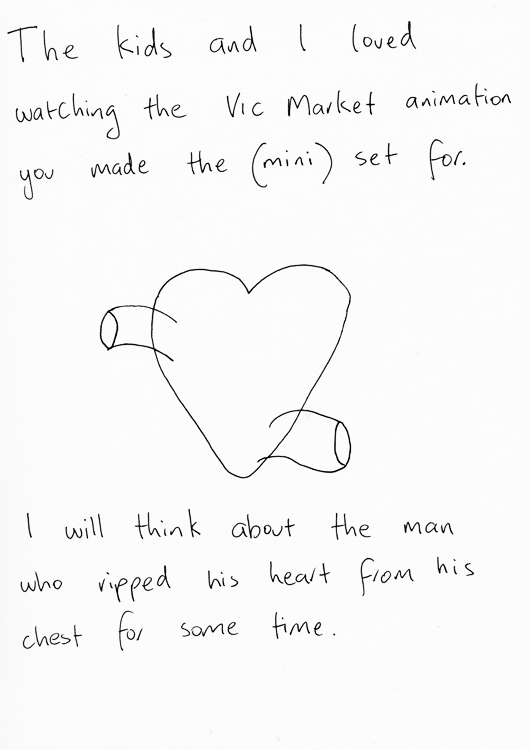 The kids and I loved
watching the Vic Market animation
you made the (mini) set for.
I will think about the man
who ripped his heart from his
chest for some time.